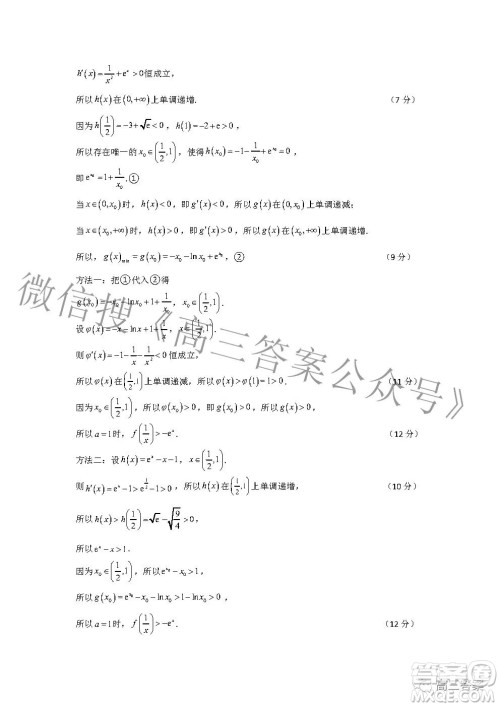 h′(x)=1/x²+eˣ>0恒成立，
所以h(x)在(0,+∞)上单调递增. （7 分）
因为h(1/2)=-3+√e<0，h(1)=-2+e>0，
所以存在唯一的x₀∈(1/2,1)，使得h(x₀)=-1-1/x₀+e^{x₀}=0，
即e^{x₀}=1+1/x₀，①
当x∈(0,x₀)时，h(x)<0，即g′(x)<0，所以g(x)在(0,x₀)上单调递减；
当x∈(x₀,+∞)时，h(x)>0，即g′(x)>0，所以g(x)在(x₀,+∞)上单调递增.
所以，g(x)min=g(x₀)=-x₀-lnx₀+e^{x₀}，② （9 分）
方法一：把①代入②得
g(x₀)=-x₀-lnx₀+1+1/x₀，x₀∈(1/2,1).
设φ(x)=-x-lnx+1+1/x，x∈(1/2,1).
则φ′(x)=-1-1/x-1/x²<0恒成立，
所以φ(x)在(1/2,1)上单调递减，所以φ(x)>φ(1)=1>0， （11 分）
因为x₀∈(1/2,1)，所以φ(x₀)>0，即g(x₀)>0，所以g(x)>0，
所以a=1时，f(1/x)>-eˣ. （12 分）
方法二：设h(x)=eˣ-x-1，x∈(1/2,1).
则h′(x)=eˣ-1>e^{1/2}-1>0，所以h(x)在(1/2,1)上单调递增， （10 分）
所以h(x)>h(1/2)=√e-√(9/4)>0，
所以eˣ-x>1.
因为x₀∈(1/2,1)，所以e^{x₀}-x₀>1，
所以g(x₀)=e^{x₀}-x₀-lnx₀>1-lnx₀>0，
所以a=1时，f(1/x)>-eˣ. （12 分）
微信搜《高三答案公众号》
高三答案